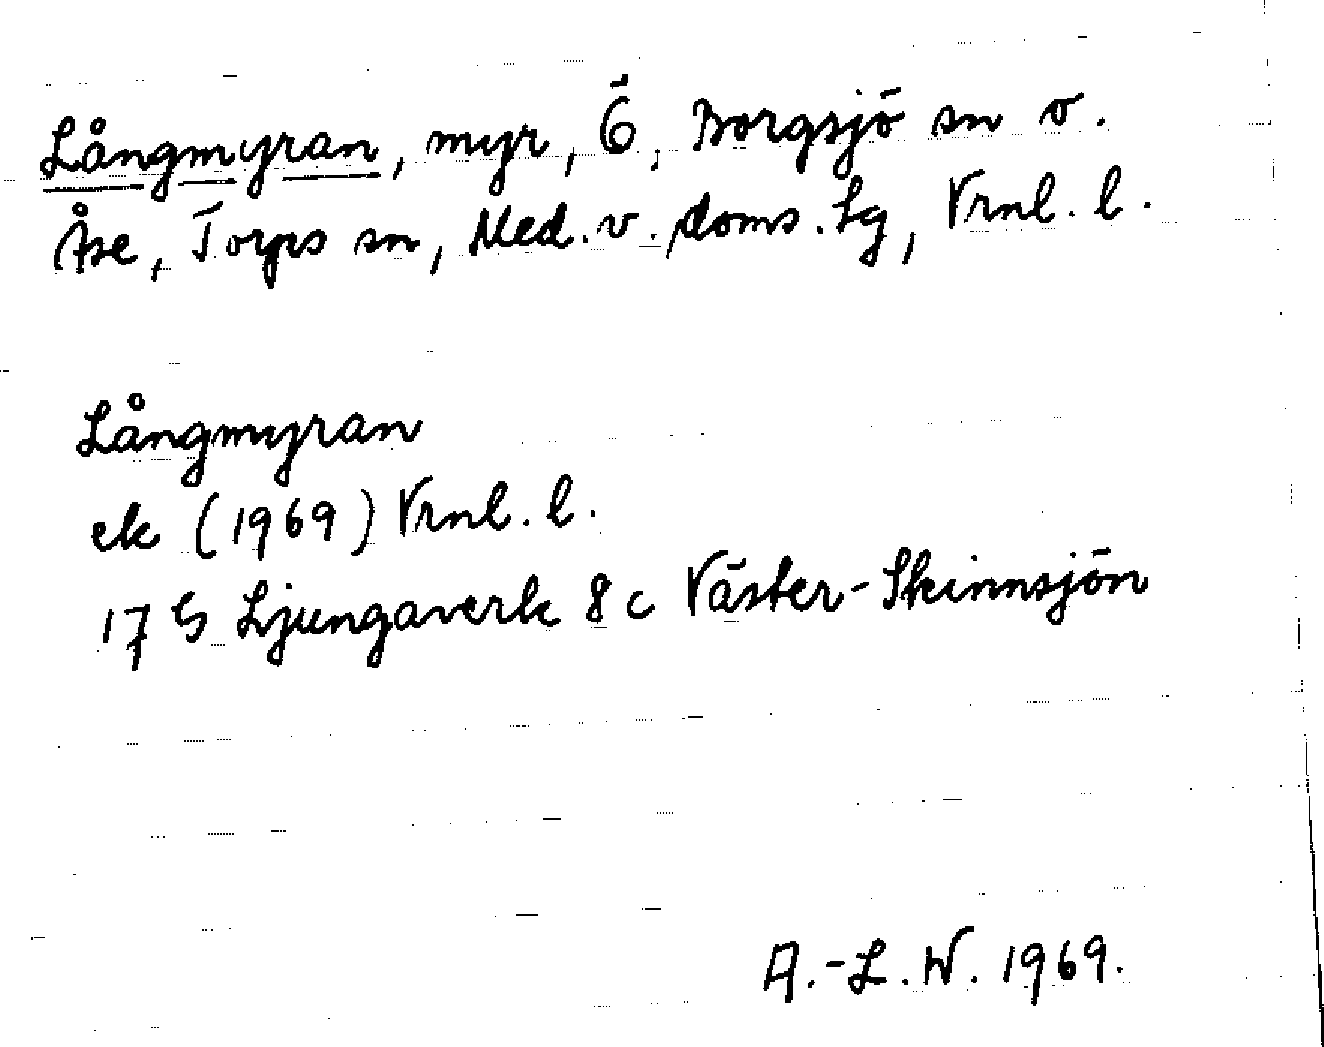 Långmyran, myr, Ö, Borgsjö sn o.
Åse, Torps sn, Med. v. doms. lg, Vrnl. l.
Långmyran
ek (1969) Vrnl. l.
17 G Ljungaverk 8 c Väster-Skinnsjön
A.-L. W. 1969.